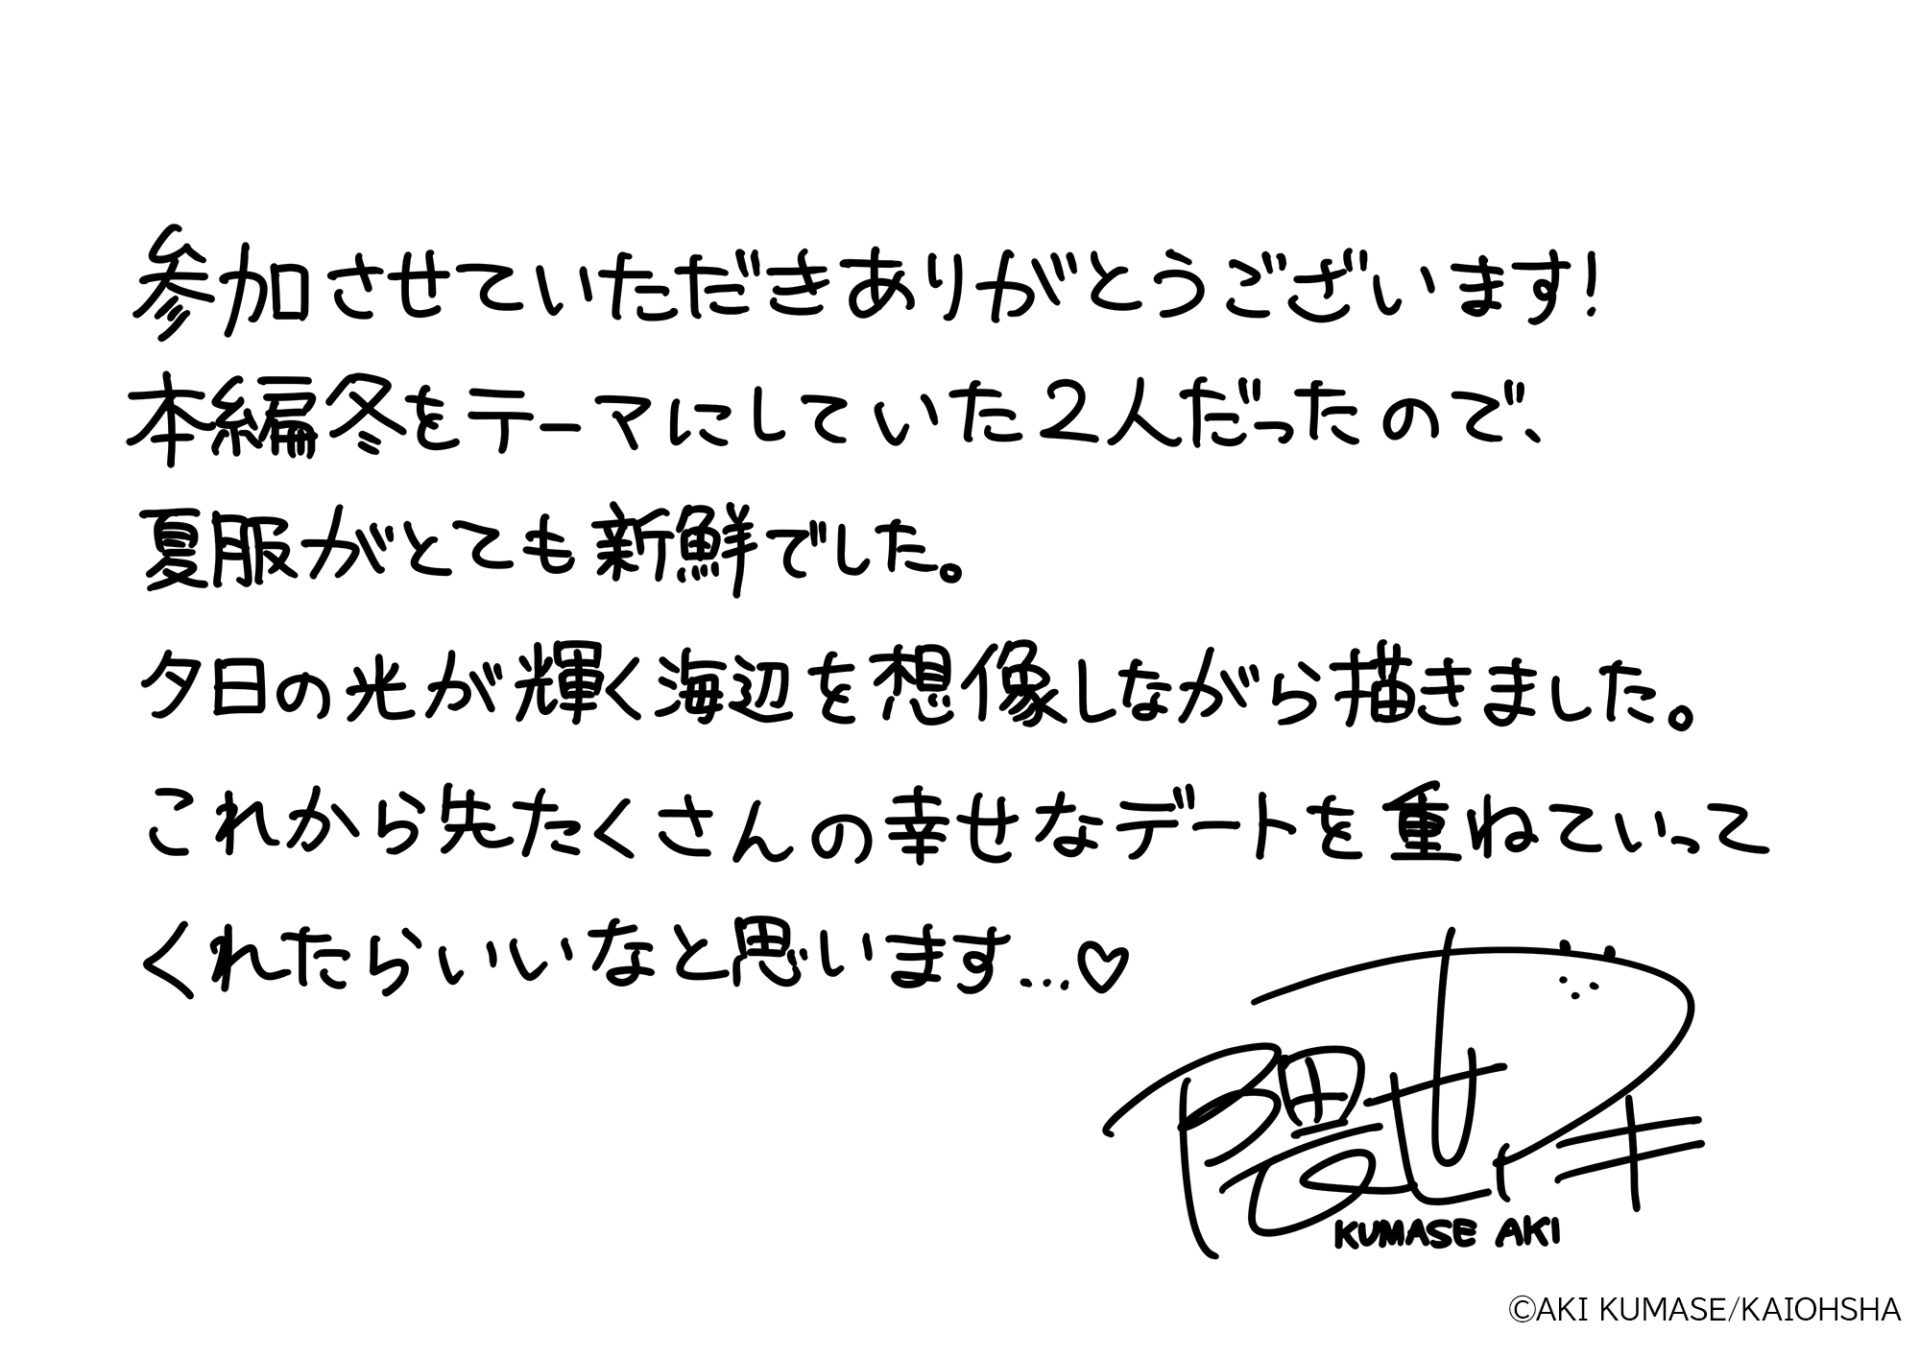 参加させていただきありがとうございます!
本編冬をテーマにしていた2人だったので、
夏服がとても新鮮でした。
夕日の光が輝く海辺を想像しながら描きました。
これから先たくさんの幸せなデートを重ねていって
くれたらいいなと思います…♡
隈せアキ
KUMASE AKI
©AKI KUMASE/KAIOHSHA